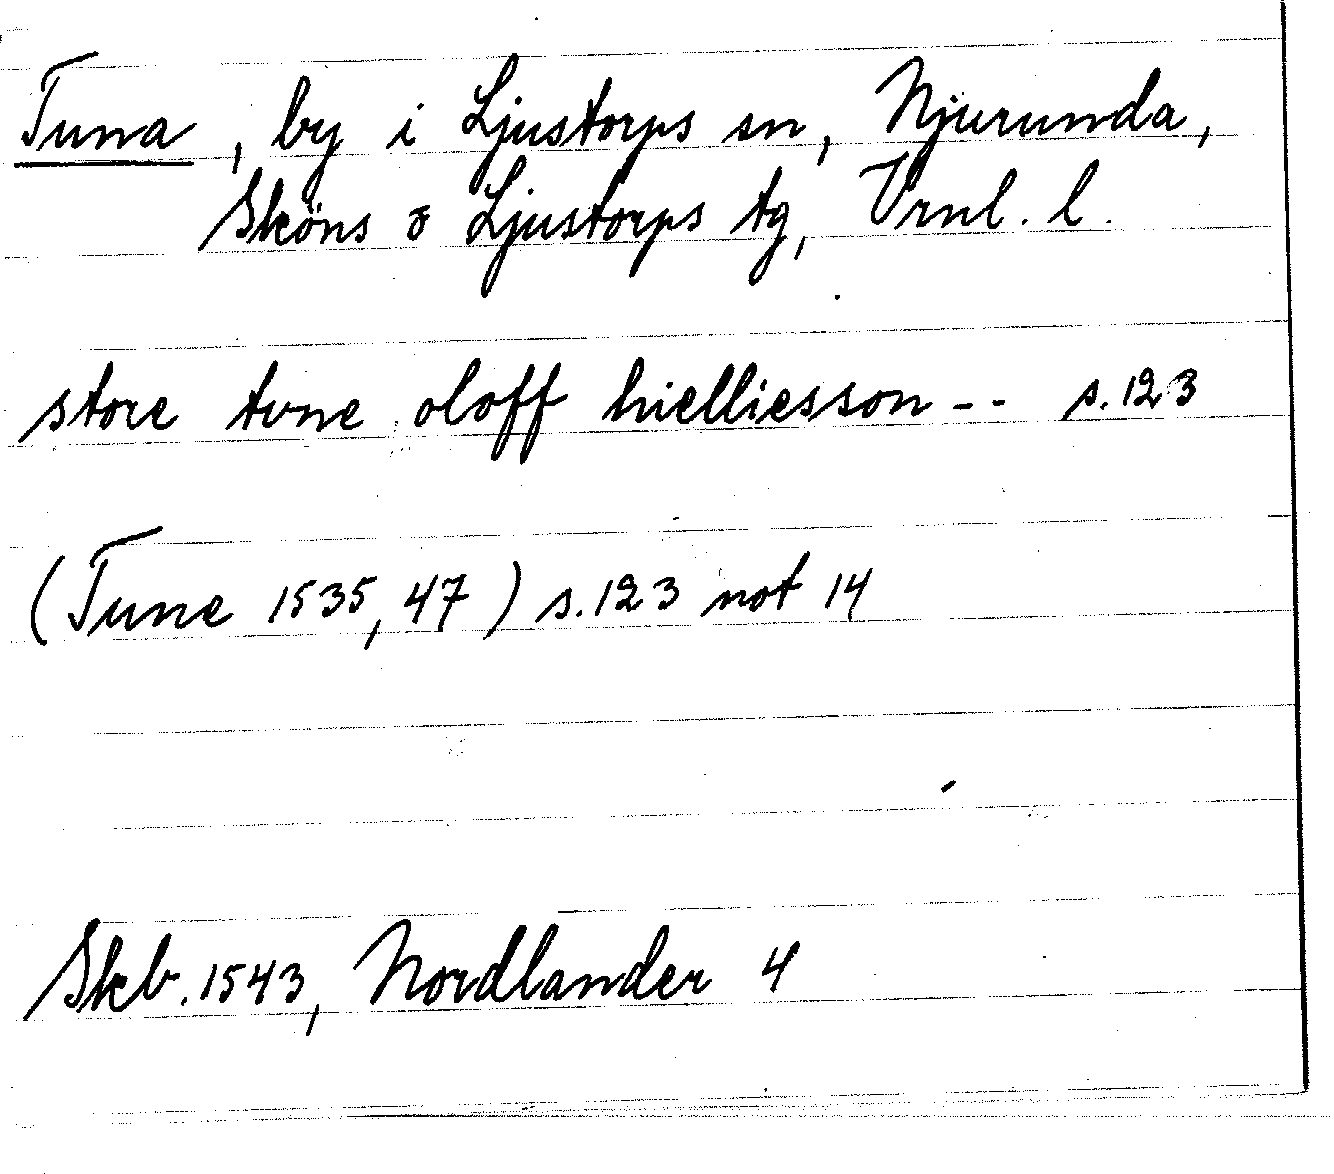 Tuna, by i Ljustorps sn, Njurunda,
Sköns o Ljustorps tg, Vrnl. l.
store tvne oloff hielliesson -- s. 123
(Tune 1535, 47) s. 123 not 14
Skb. 1543, Nordlander 4